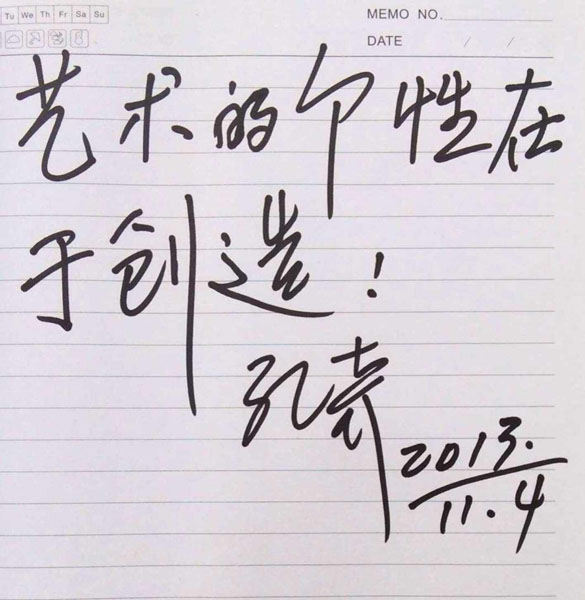 Tu We Th Fr Sa Su
MEMO NO.
DATE / /
艺术的个性在
于创造!
孔
2013.
11.4